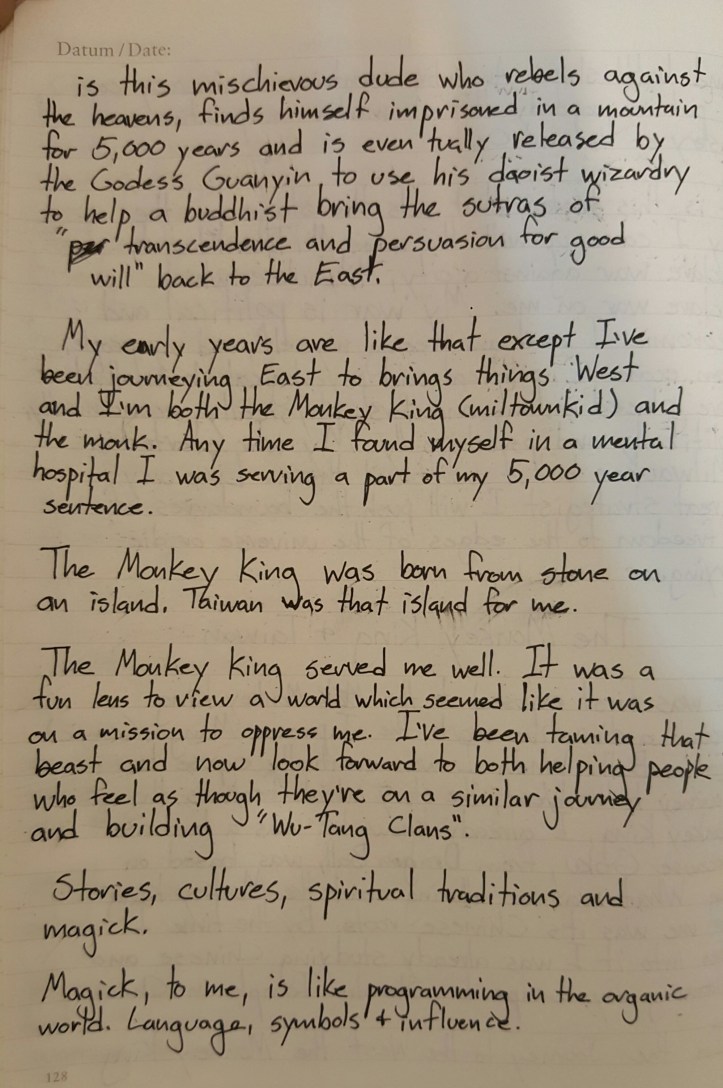 Datum / Date:
is this mischievous dude who rebels against
the heavens, finds himself imprisoned in a mountain
for 5,000 years and is even tually released by
the Godess Guanyin to use his daoist wizardry
to help a buddhist bring the sutras of
"per transcendence and persuasion for good
will" back to the East.
My early years are like that except I've
been journeying East to brings things West
and I'm both the Monkey King (miltownkid) and
the monk. Any time I found myself in a mental
hospital I was serving a part of my 5,000 year
sentence.
The Monkey King was born from stone on
an island. Taiwan was that island for me.
The Monkey King served me well. It was a
fun lens to view a world which seemed like it was
on a mission to oppress me. I've been taming that
beast and now look forward to both helping people
who feel as though they're on a similar journey
and building "Wu-Tang Clans".
Stories, cultures, spiritual traditions and
magick.
Magick, to me, is like programming in the organic
world. Language, symbols + influence.
128